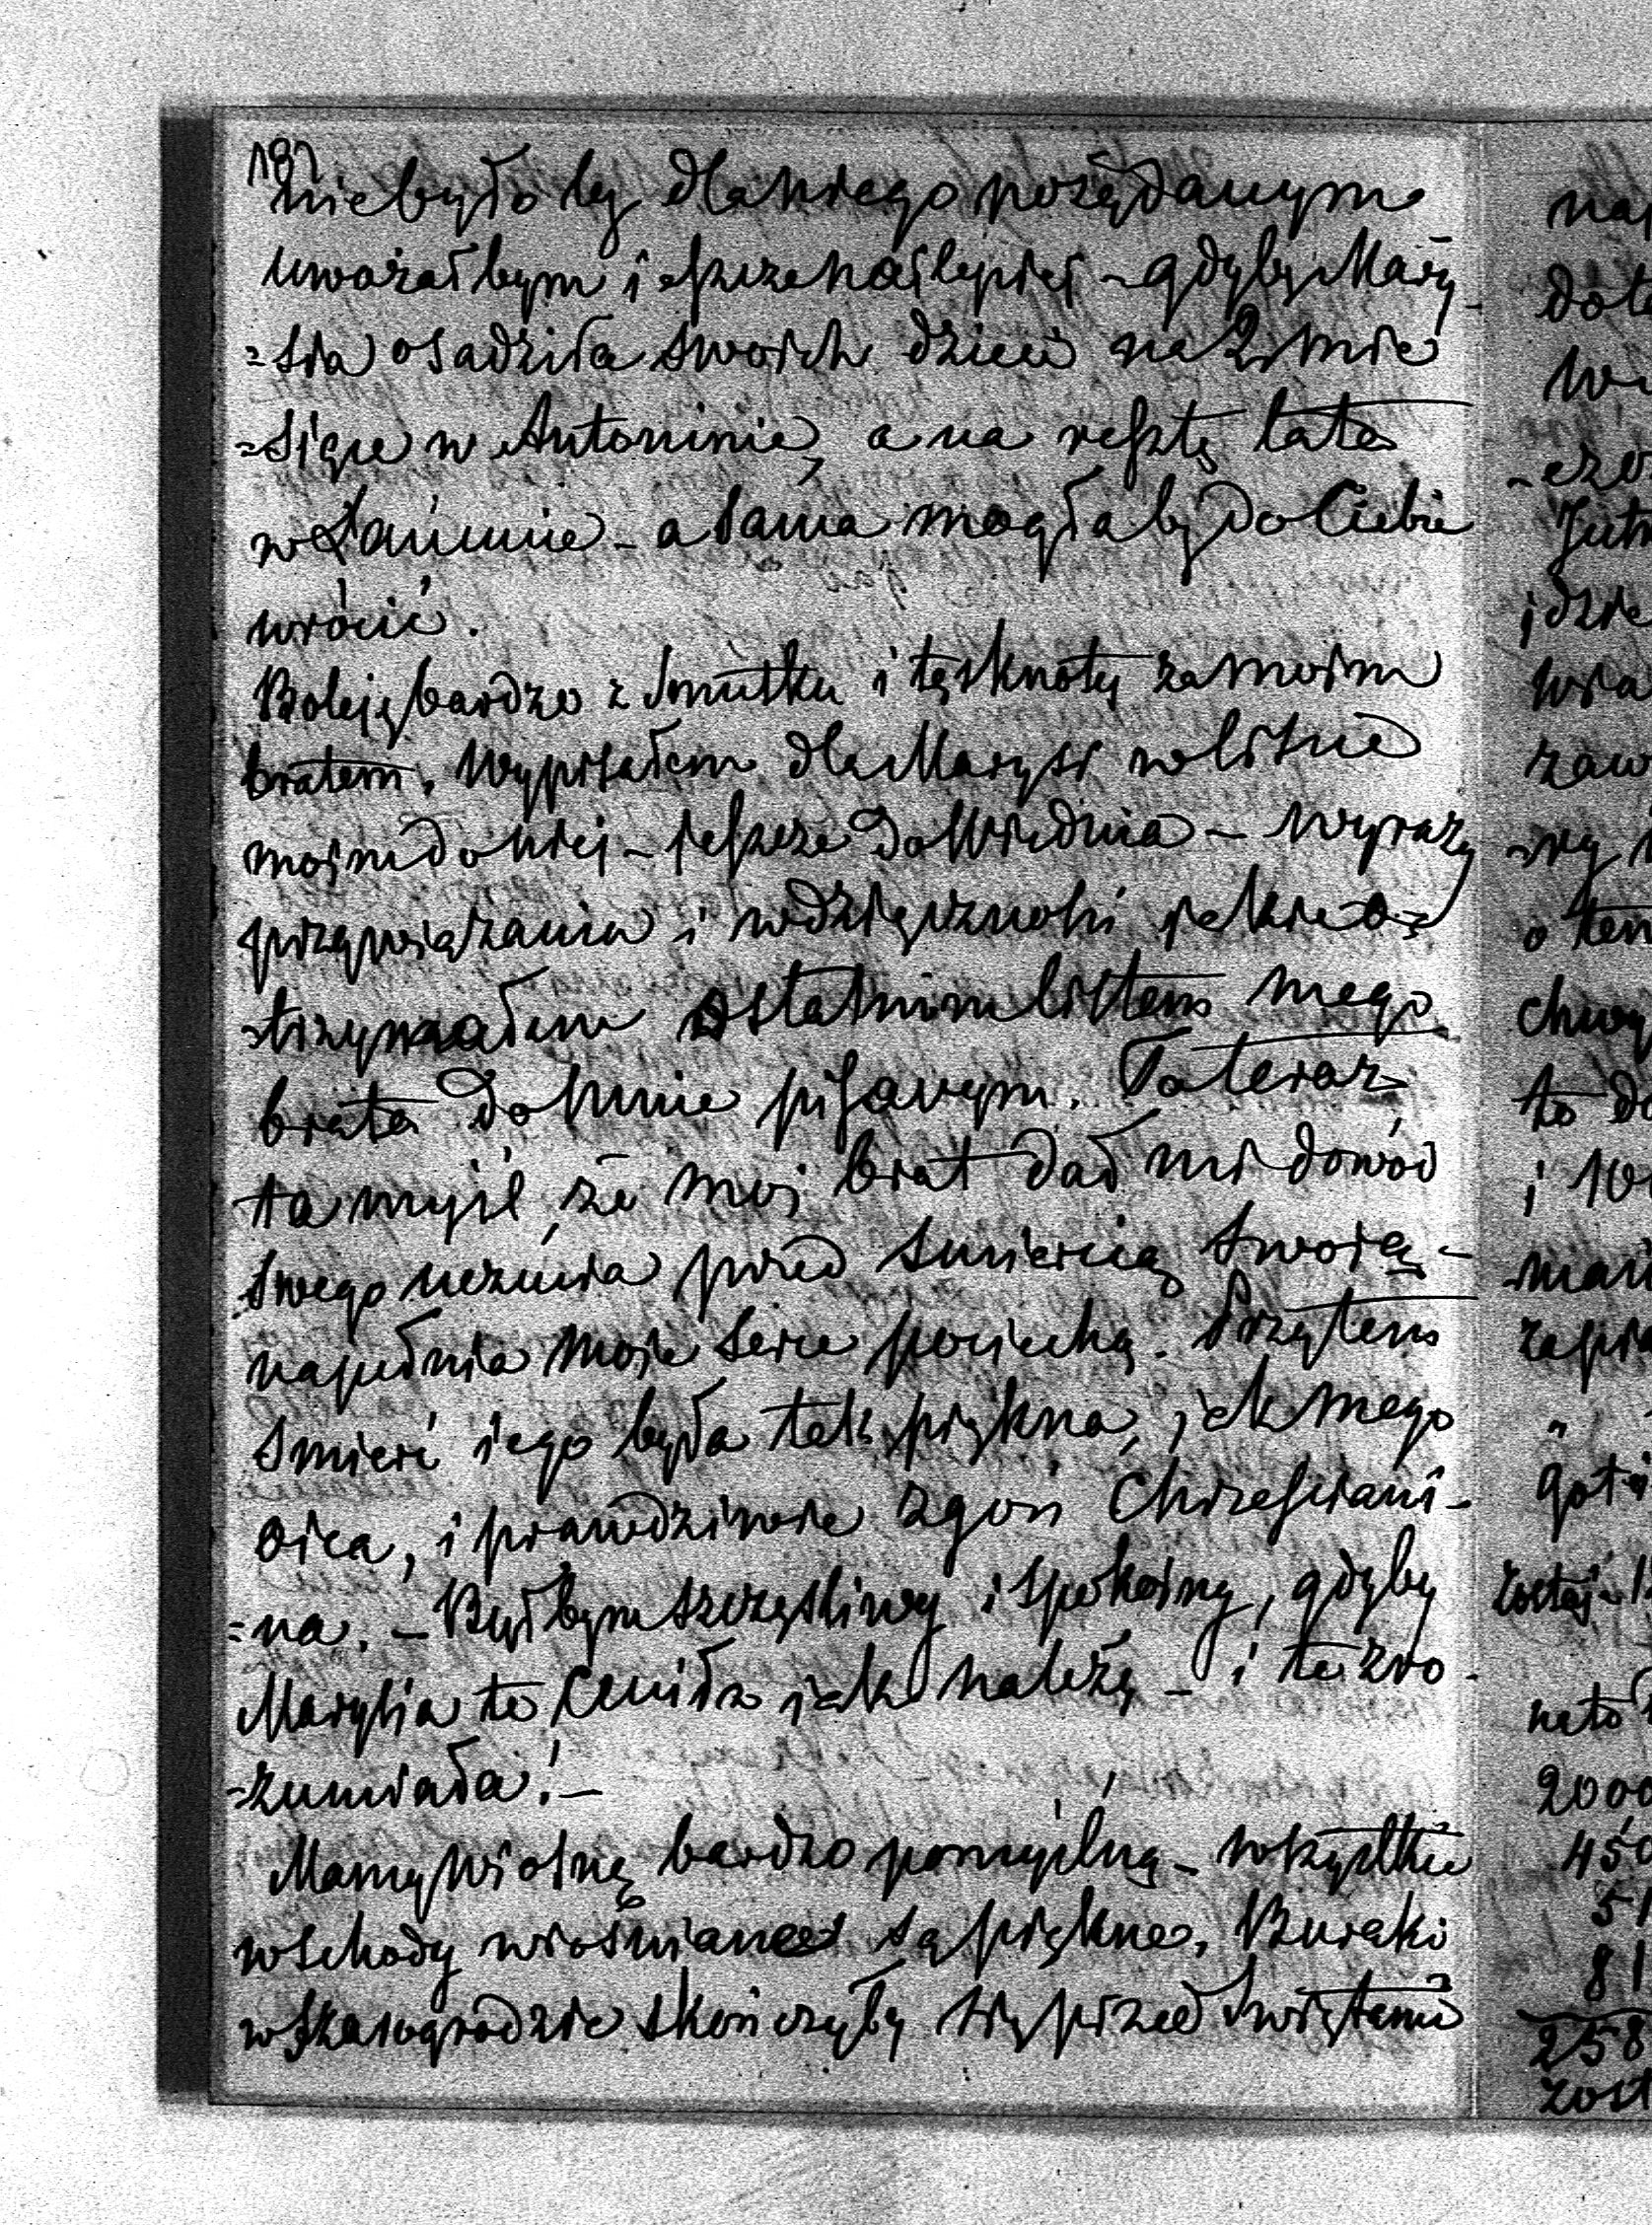 187
niebyłoby dlaniego pożądanym
uważałbym jeszcze najlepiej – gdyby Mary-
=sia osadziła swoich dzieci na 2 mie
=siące w Antoninie, a na resztę lata
w Łańcucie – a sama mogłaby do Ciebie
wrócić.
Boleję bardzo z smutku i tęsknoty za moim
bratem. Wypisałem dla Marysi w liście
moim do niej – jeszcze do Wiednia – wyrazy
przywiązania i wdzięczności jakie o=
=trzymałem ostatnim listem mego
brata do mnie pisanym. To teraz
ta myśl, że moj brat dał mi dowód
swego uczucia przed smiercią swoią –
napełnia moje serce pociechą. Przytem
Smierć iego była tak piękna, jak mego
oica, i prawdziwie zgon Chrześciani-
=na. – Byłbym szczęśliwy i spokoiny, gdyby
Marysia to ceniła jak należy – i to zro-
-zumiała! –
Mamy wiosnę bardzo pomyślną – wszystkie
wschody wiośniane są piękne. Buraki
w Szarogrodzie skończyły się przed Świętami
na
dol
w
-czo
Jut
jdzie
wia
zaw
-ry
o tem
chwy
to d
i 10
-mar
zapi
"
goto
zostaj – 1
na to
200
450
51
81
258
zost